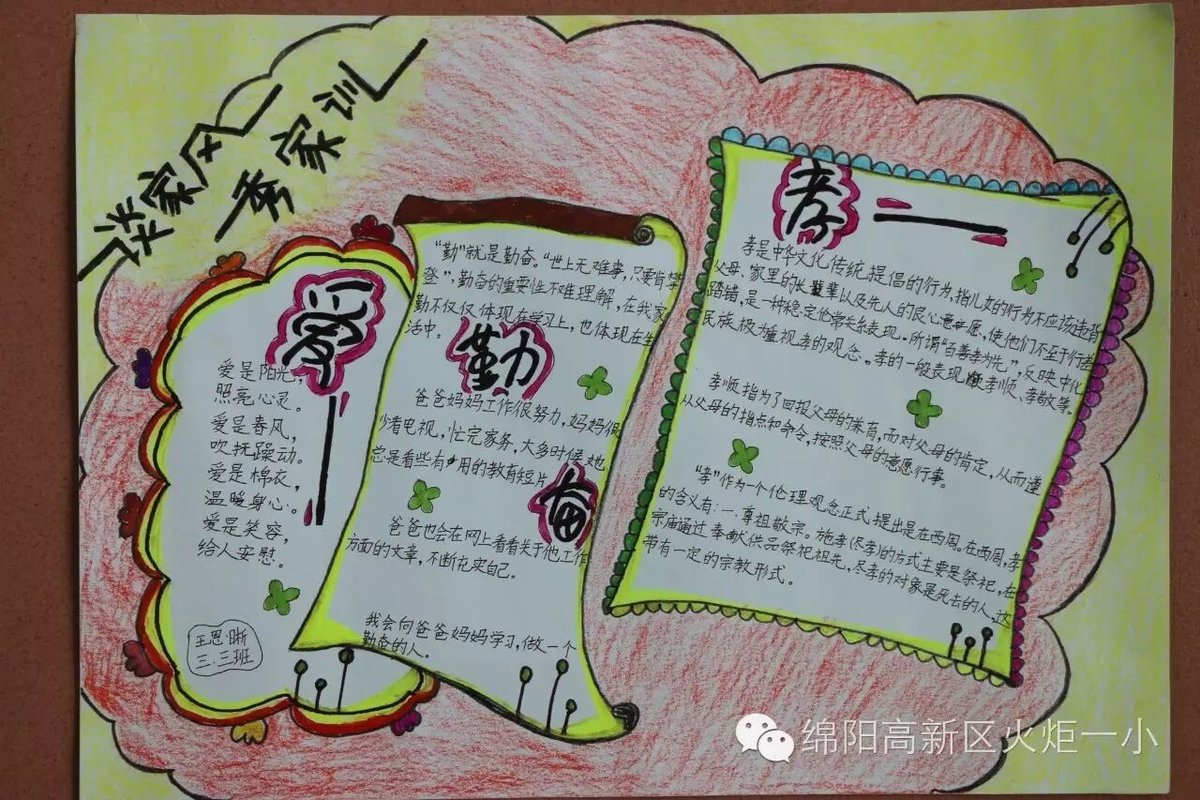 谈家风
秀家训
爱
爱是阳光，
照亮心灵。
爱是春风，
吹抚躁动。
爱是棉衣，
温暖身心。
爱是笑容，
给人安慰。
王恩晰
三.三班
“勤”就是勤奋。“世上无难事，只要肯攀
登”，勤奋的重要性不难理解，在我家
勤不仅仅体现在学习上，也体现在生
活中。
勤
爸爸妈妈工作很努力，妈妈很
少看电视，忙完家务，大多时候她
总是看些有用的教育短片
奋
爸爸也会在网上看看关于他工作
方面的文章，不断充实自己。
我会向爸爸妈妈学习，做一个
勤奋的人。
孝
孝是中华文化传统提倡的行为，指儿女的行为不应该违背
父母、家里的长辈以及先人的良心意愿，使他们不至于行差
踏错，是一种稳定伦常关系表现。所谓“百善孝为先”，反映中化
民族极为重视孝的观念。孝的一般表现孝顺、孝敬等。
孝顺指为了回报父母的养育，而对父母的肯定，从而遵
从父母的指点和命令，按照父母的意愿行事。
“孝”作为一个伦理观念正式提出是在西周。在西周，孝
的含义有：一.尊祖敬宗。施孝（尽孝）的方式主要是祭祀，在
宗庙通过奉献供品祭祀祖先，尽孝的对象是死去的人，这
带有一定的宗教形式。
绵阳高新区火炬一小